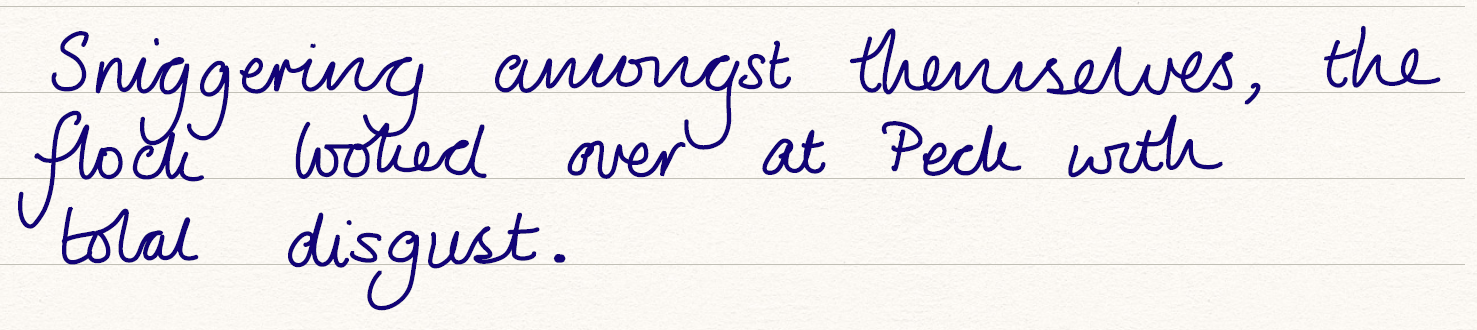 Sniggering amongst themselves, the
flock looked over at Peck with
total disgust.